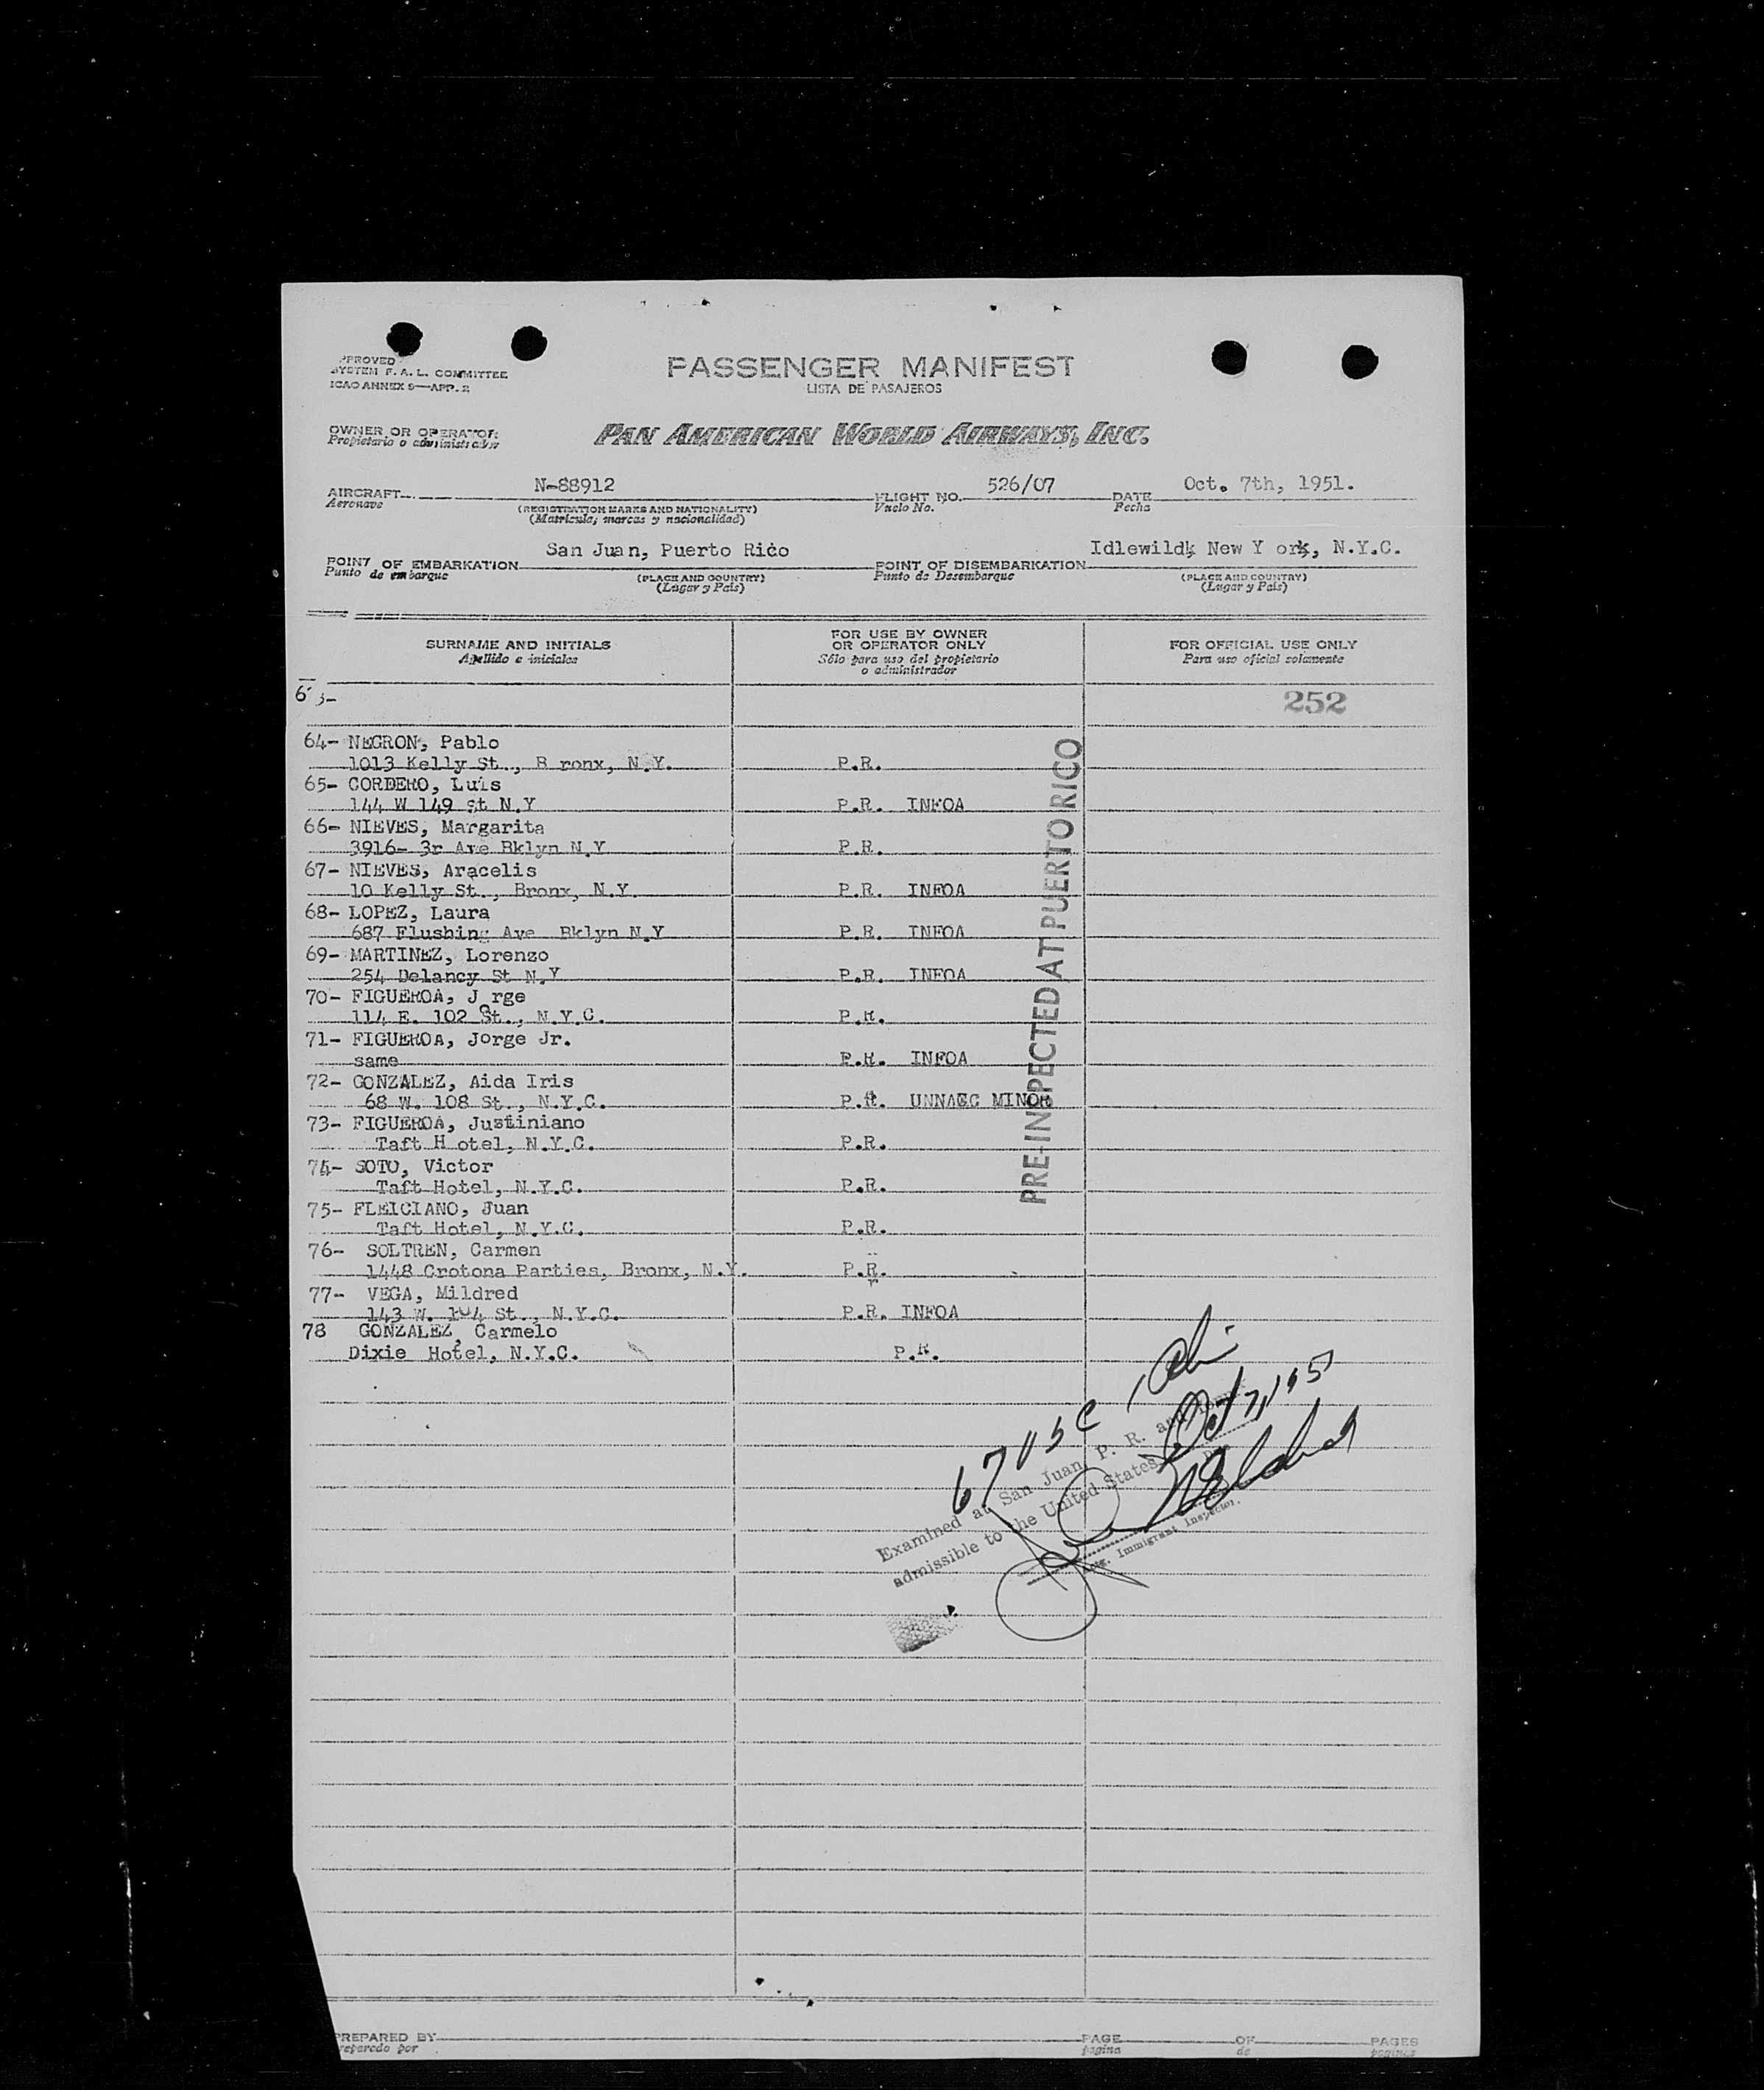 PASSENGER MANIFEST
LISTA DE PASAJEROS
SYSTEM F. A. L. COMMITTEE
ICAO ANNEX 9—APP. 2
OWNER OR OPERATOR
Propietario o administrador
PAN AMERICAN WORLD AIRWAYS, INC.
AIRCRAFT N-88912 FLIGHT NO. 526/07 DATE Oct. 7th, 1951.
Aeronave (REGISTRATION MARKS AND NATIONALITY) Vuelo No. Fecha
(Matrícula; marcas y nacionalidad)
POINT OF EMBARKATION San Juan, Puerto Rico POINT OF DISEMBARKATION Idlewildk New Y ork, N.Y.C.
Punto de embarque (PLACE AND COUNTRY) Punto de Desembarque (PLACE AND COUNTRY)
(Lugar y País) (Lugar y País)
SURNAME AND INITIALS FOR USE BY OWNER OR OPERATOR ONLY FOR OFFICIAL USE ONLY
Apellido e iniciales Sólo para uso del propietario o administrador Para uso oficial solamente
252
64- NEGRON, Pablo
1013 Kelly St., B ronx, N.Y. P.R.
65- CORDERO, Luis
144 W 149 st N.Y P.R. INFOA
66- NIEVES, Margarita
3916- 3r Ave Bklyn N.Y P.R.
67- NIEVES, Aracelis
10 Kelly St., Bronx, N.Y. P.R. INFOA
68- LOPEZ, Laura
687 Flushing Ave Bklyn N.Y P.R. INFOA
69- MARTINEZ, Lorenzo
254 Delancy St N.Y P.R. INFOA
70- FIGUEROA, J rge
114 E. 102 St., N.Y.C. P.R.
71- FIGUEROA, Jorge Jr.
same P.R. INFOA
72- GONZALEZ, Aida Iris
68 W. 108 St., N.Y.C. P.R. UNNACC MINOR
73- FIGUEROA, Justiniano
Taft H otel, N.Y.C. P.R.
74- SOTO, Victor
Taft Hotel, N.Y.C. P.R.
75- FLEICIANO, Juan
Taft Hotel, N.Y.C. P.R.
76- SOLTREN, Carmen
1448 Crotona Parties, Bronx, N.Y. P.R.
77- VEGA, Mildred
143 W. 104 St., N.Y.C. P.R. INFOA
78 GONZALEZ, Carmelo
Dixie Hotel, N.Y.C. P.R.
PRE-INSPECTED AT PUERTO RICO
Examined at San Juan, P. R. and
admissible to the United States
Immigrant Inspector.
PREPARED BY PAGE OF PAGES
Preparado por página de páginas